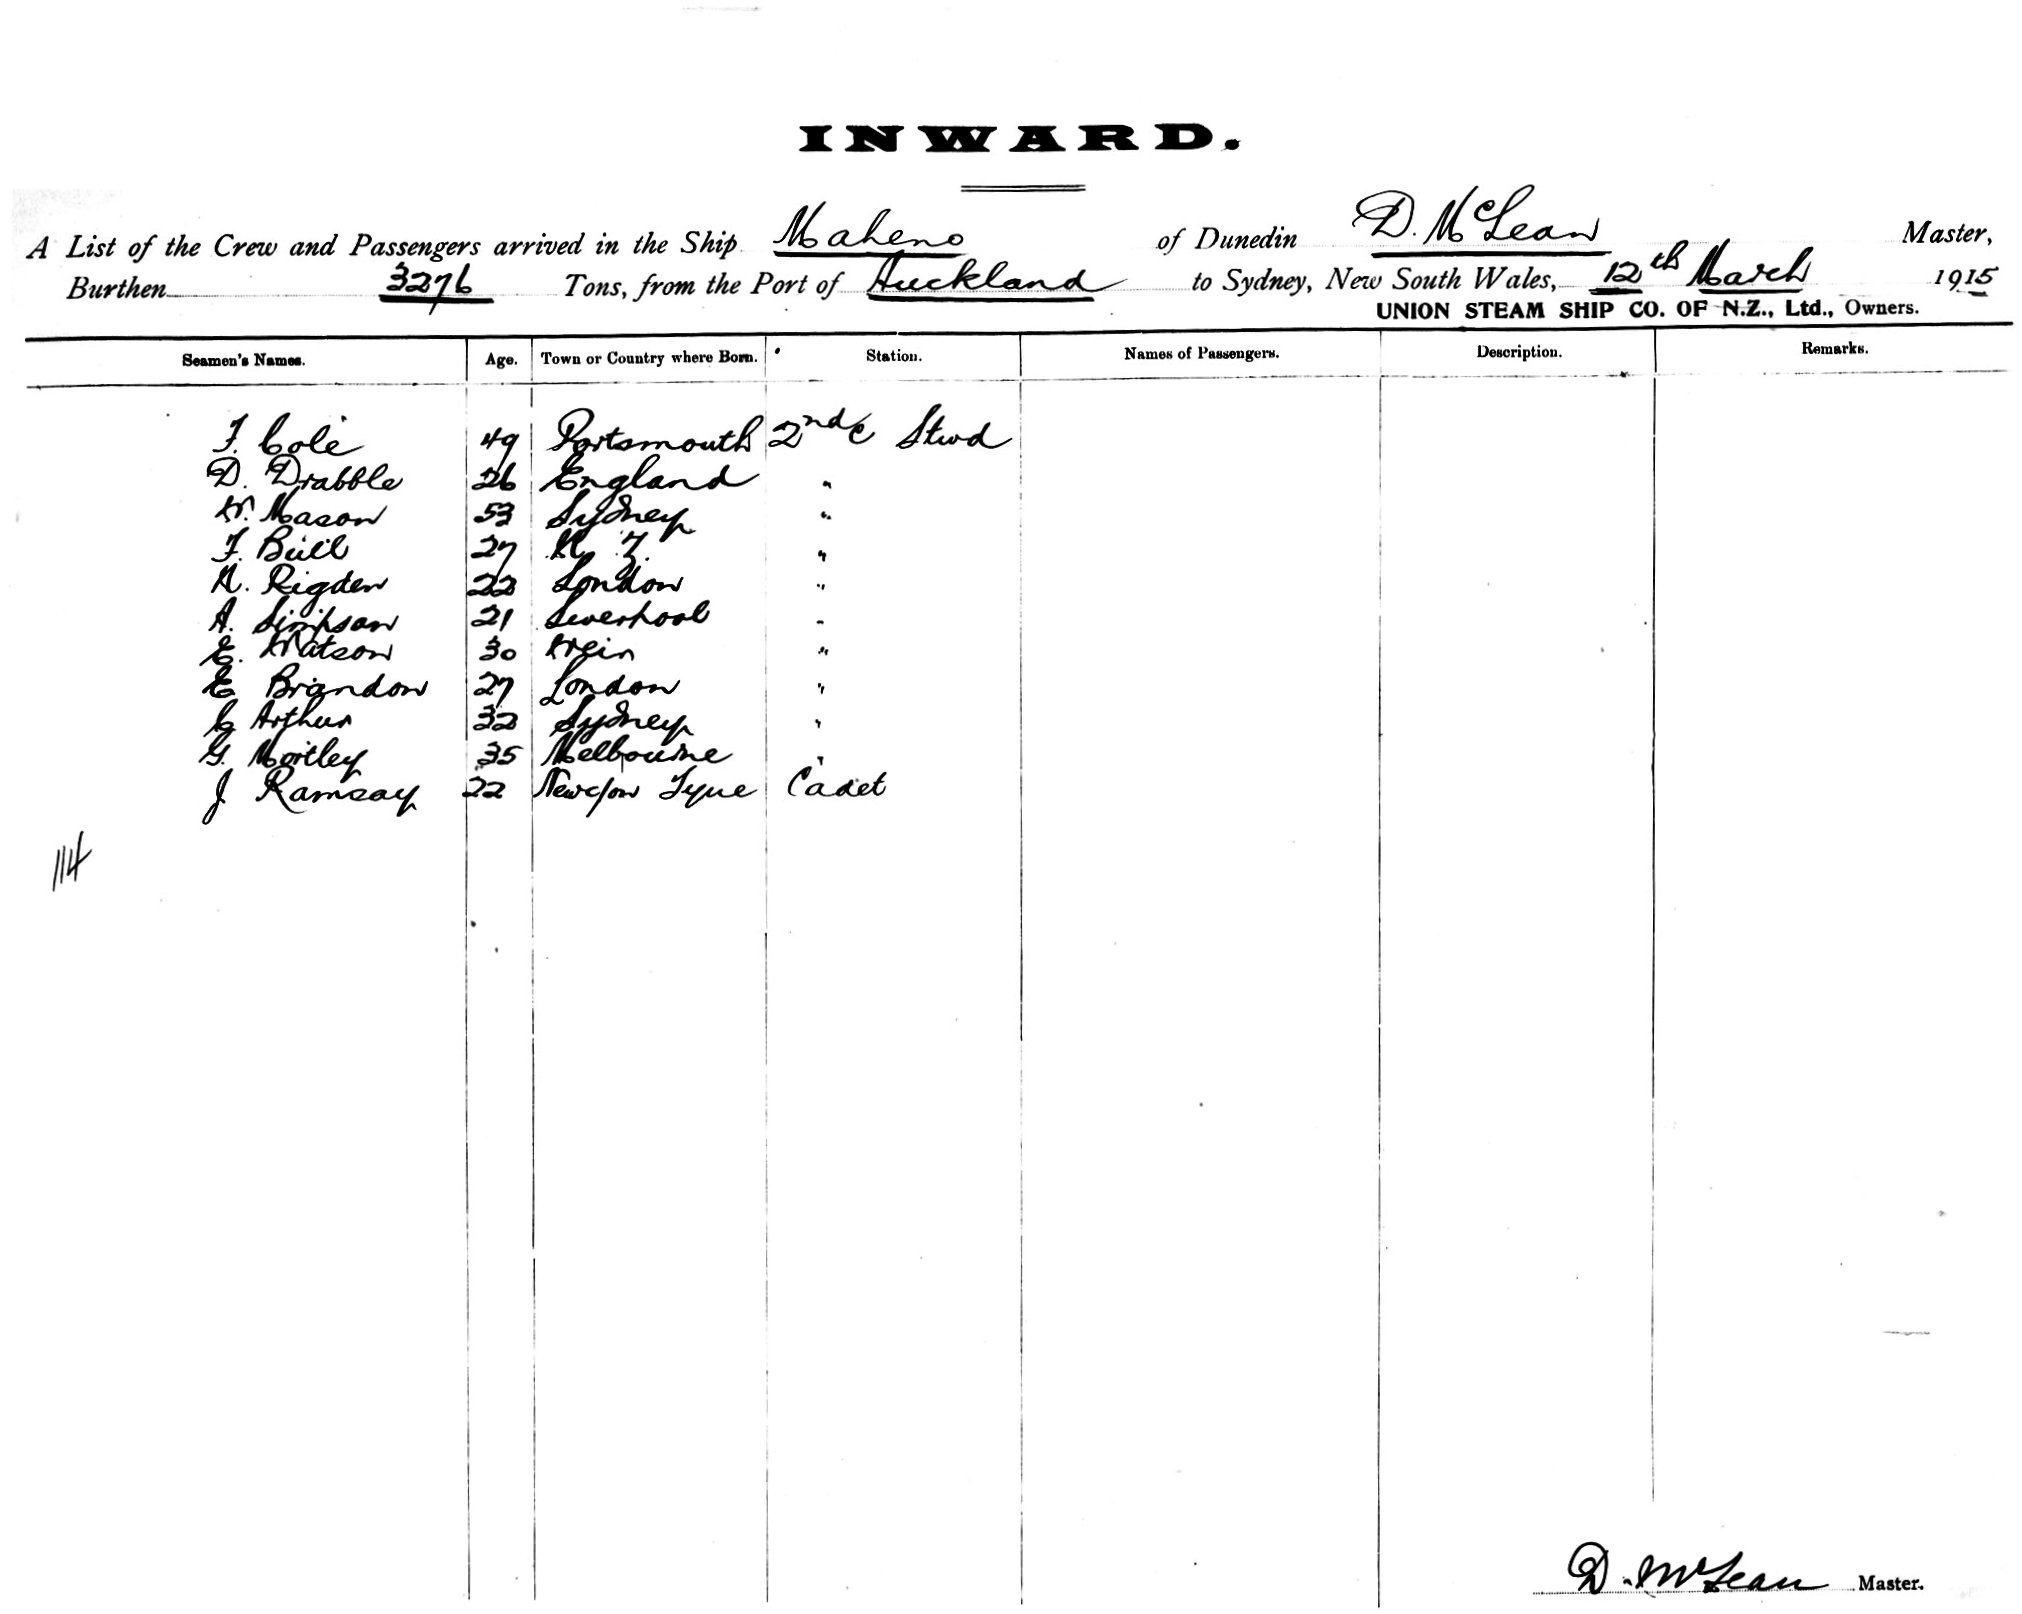 INWARD.
A List of the Crew and Passengers arrived in the Ship Maheno of Dunedin D. McLean Master,
Burthen 3276 Tons, from the Port of Auckland to Sydney, New South Wales, 12th March 1915
UNION STEAM SHIP CO. OF N.Z., Ltd., Owners.
Seamen's Names. Age. Town or Country where Born. Station. Names of Passengers. Description. Remarks.
F. Cole 49 Portsmouth 2nd C Stwd
D. Drabble 26 England "
W. Mason 53 Sydney "
F. Bull 27 N. Z. "
H. Rigden 22 London "
A. Simpson 21 Liverpool "
E. Watson 30 "
E Brandon 27 London "
C Arthur 32 Sydney "
G. Mortley 35 Melbourne "
J Ramsay 22 Newc/on Tyne Cadet
114
D. McLean Master.